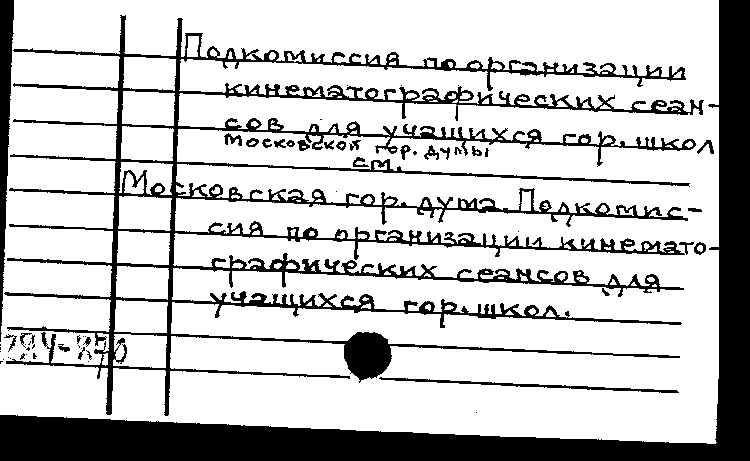 Подкомиссия по организации
кинематографических сеан-
сов для учащихся гор. школ
Московской гор. думы
см.
Московская гор. дума. Подкомис-
сия по организации кинемато-
графических сеансов для
учащихся гор. школ.